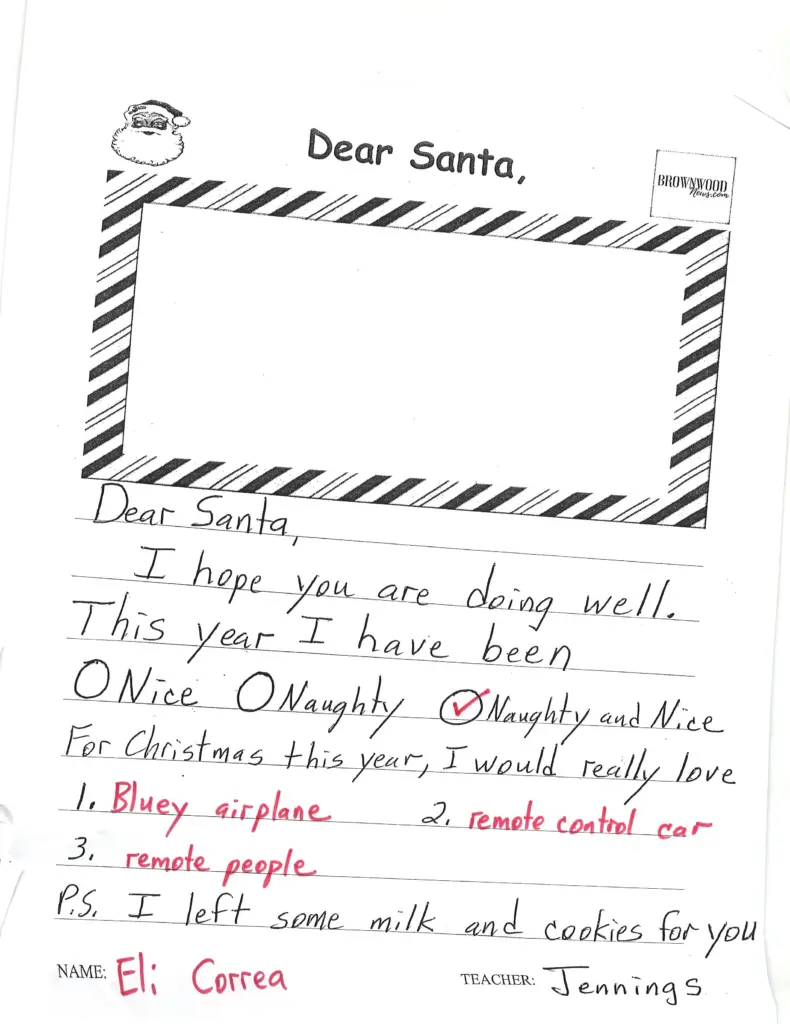 Dear Santa,
BROWNWOOD
News.com
Dear Santa,
I hope you are doing well.
This year I have been
Nice Naughty Naughty and Nice
For Christmas this year, I would really love
1. Bluey airplane 2. remote control car
3. remote people
P.S. I left some milk and cookies for you
NAME: Eli Correa TEACHER: Jennings